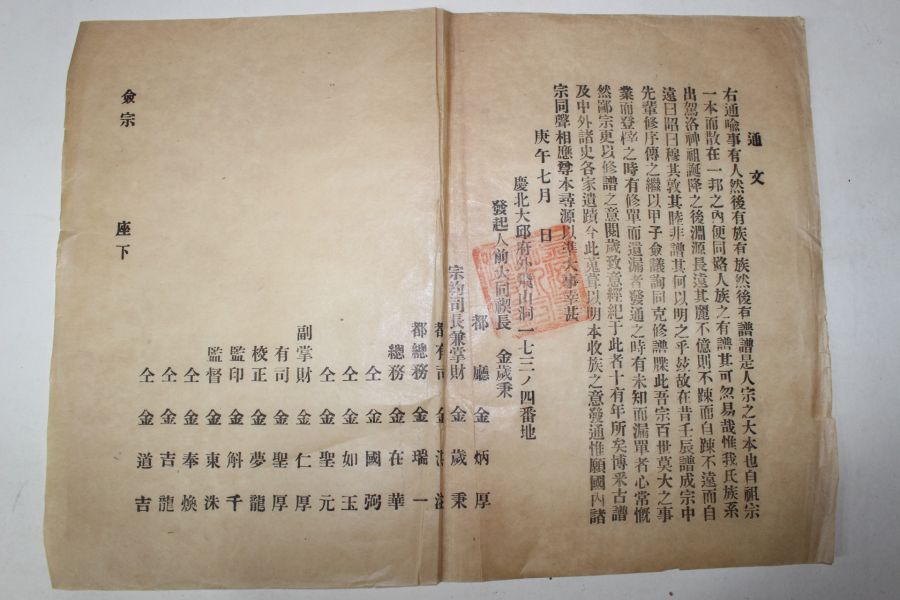 通文
右通喩事有人然後有族有族然後有譜譜是人宗之大本也自祖宗
一本而散在一邦之內便同路人族之有譜其可忽易哉惟我氏族系
出駕洛神祖誕降之後淵源長遠其麗不億則不踈而自踈不遠而自
遠曰昭曰穆其敦其睦非譜其何以明之乎故在昔壬辰譜成宗中
先輩修序傳之繼以甲子僉議詢同克修譜牒此吾宗百世莫大之事
業而登梓之時有修單而遺漏者發通之時有未知而漏單者心常慨
然鄙宗更以修譜之意閱歲致意經紀于此者十有年所矣博釆古譜
及中外諸史各家遺蹟今此蒐葺以明本收族之意發通惟願國內諸
宗同聲相應尊本尋源以準大事幸甚
庚午七月 日
慶北大邱府外飛山洞一七三ノ四番地
發起人前大同禊長 金歲秉
都廳 金炳厚
宗約司長兼掌財 金歲秉
都有司 金
都總務 金瑞一
總務 金在華
仝 金國弼
仝 金如玉
仝 金聖元
副掌財 金仁厚
有司 金聖厚
校正 金夢龍
監印 金斛千
監督 金東洙
仝 金奉煥
仝 金吉龍
仝 金道吉
僉宗 座下